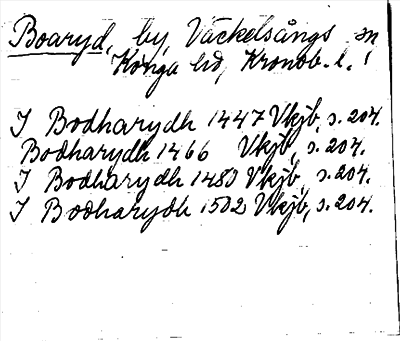 Boaryd, by, Väckelsångs sn
Konga hd, Kronob. l.
I Bodharydh 1447 Vkjb, s. 204.
Bodharydh 1466 Vkjb, s. 204.
I Bodharydh 1480 Vkjb, s. 204.
I Bodharydh 1502 Vkjb, s. 204.